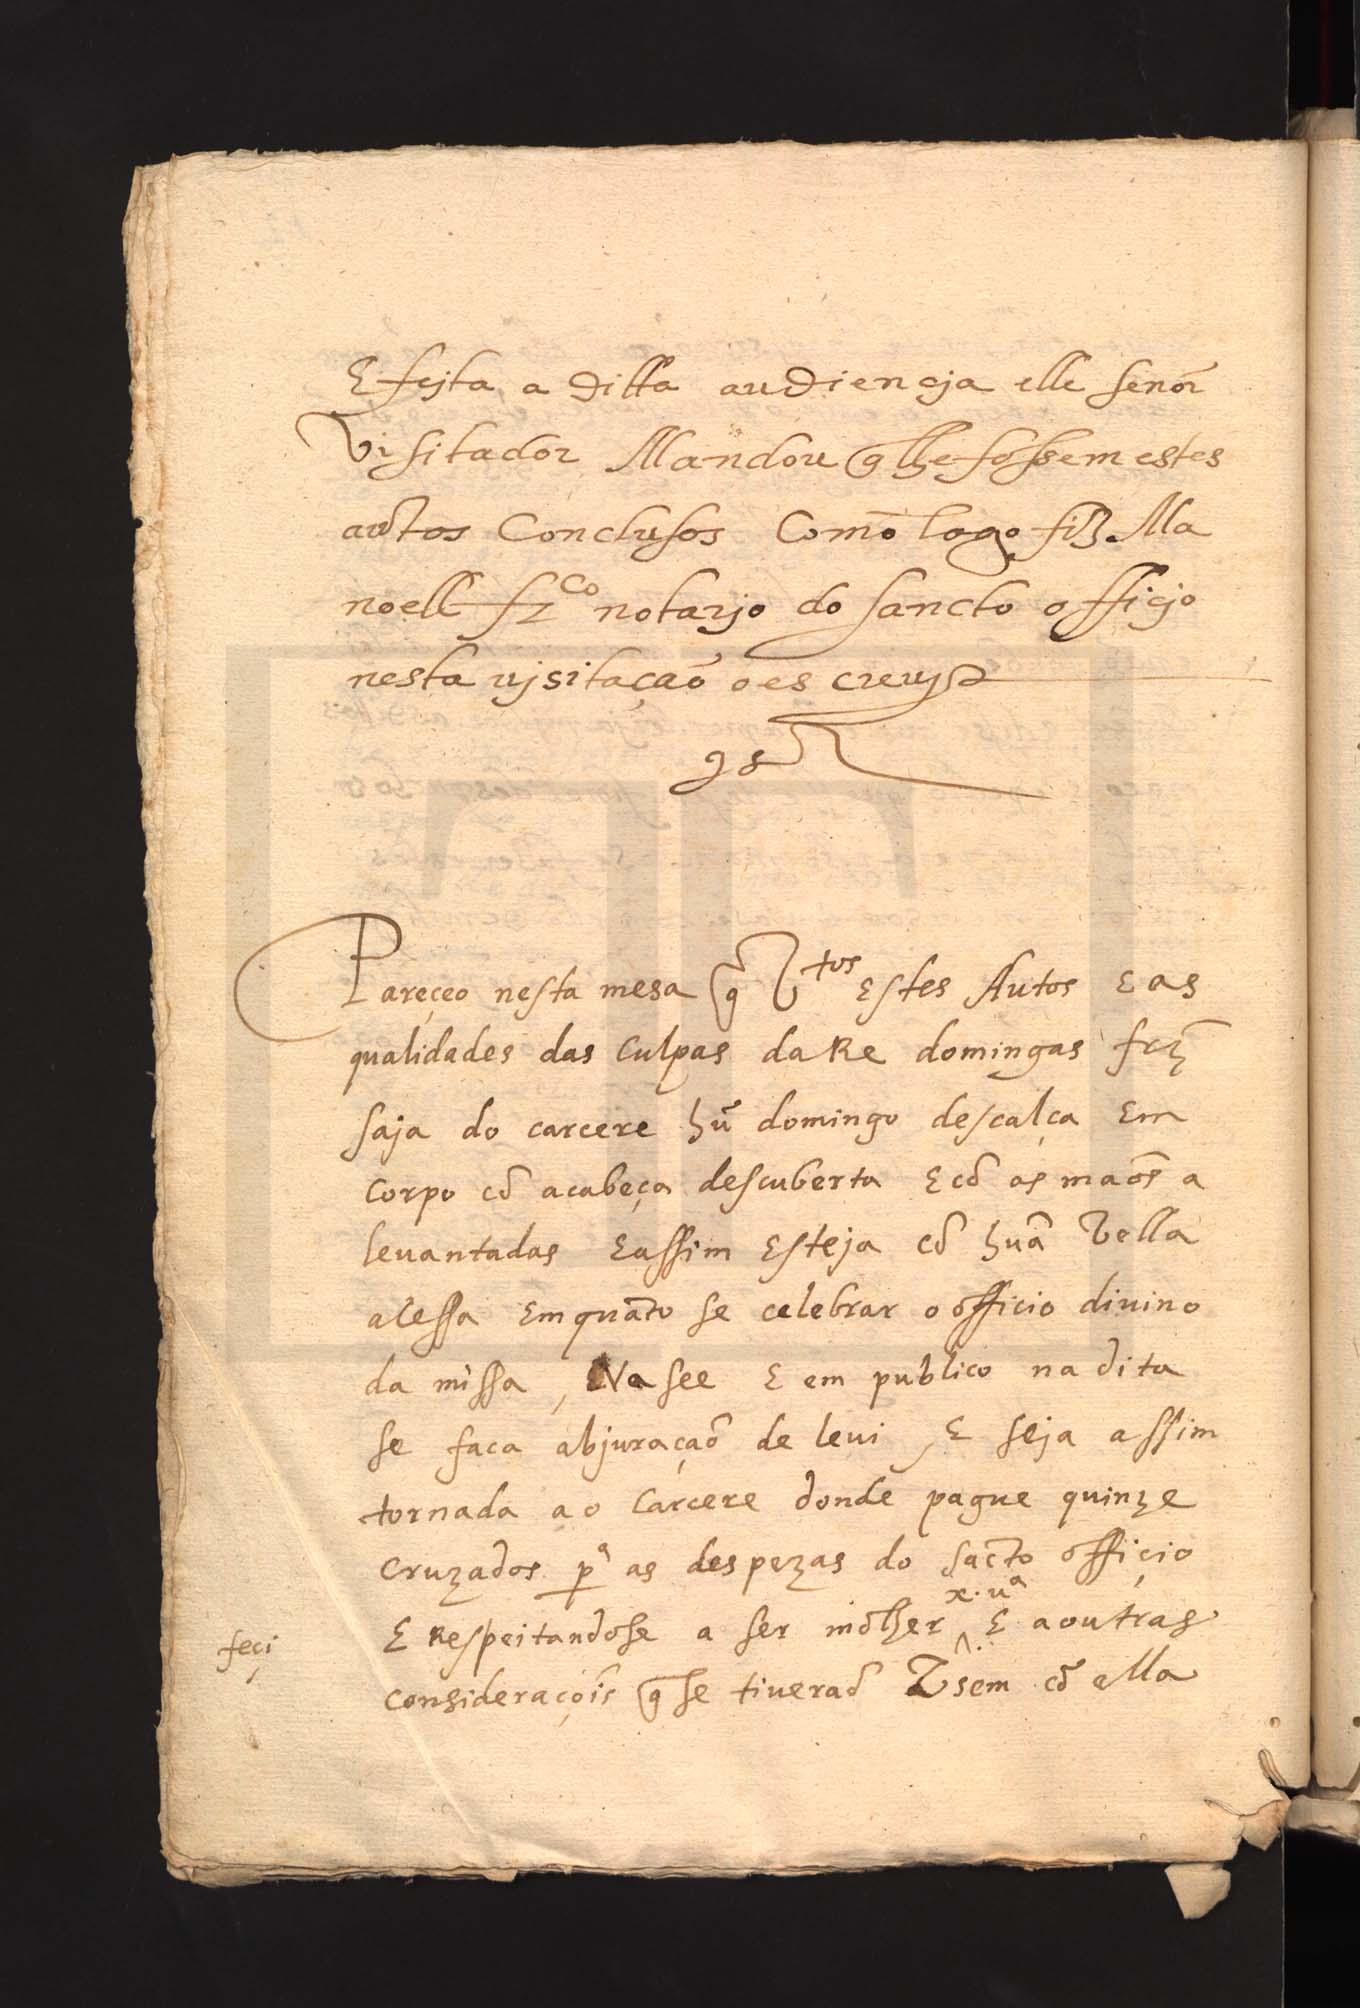 E fejta a ditta audiencja elle senõr
Visitador Mandou q̃ lhe fossem estes
autos Conclusos Como logo fiz Ma
noell frco notarjo do sancto officjo
nesta vjsitaçaõ o escreuj
Pareçeo nesta mesa q̃ vtos Estes Autos E as
qualidades das Culpas da Re domingas frz̃
saja do carcere hũ domingo descalça Em
Corpo cõ a cabeça descuberta E cõ as maõs a
leuantadas E assim Esteja cõ huã Vella
acessa Emquãto se celebrar o officio diuino
da missa, Na see E em publico na dita
se faca abjuraçaõ de leui, E seja assim
tornada ao Carcere donde pague quinze
Cruzados pa as despezas do sãcto offiçio
x. ua
E Respeitandose a ser molher E a outras
feçi
Consideraçoĩs q̃ se tiueraõ Vsem cõ ella